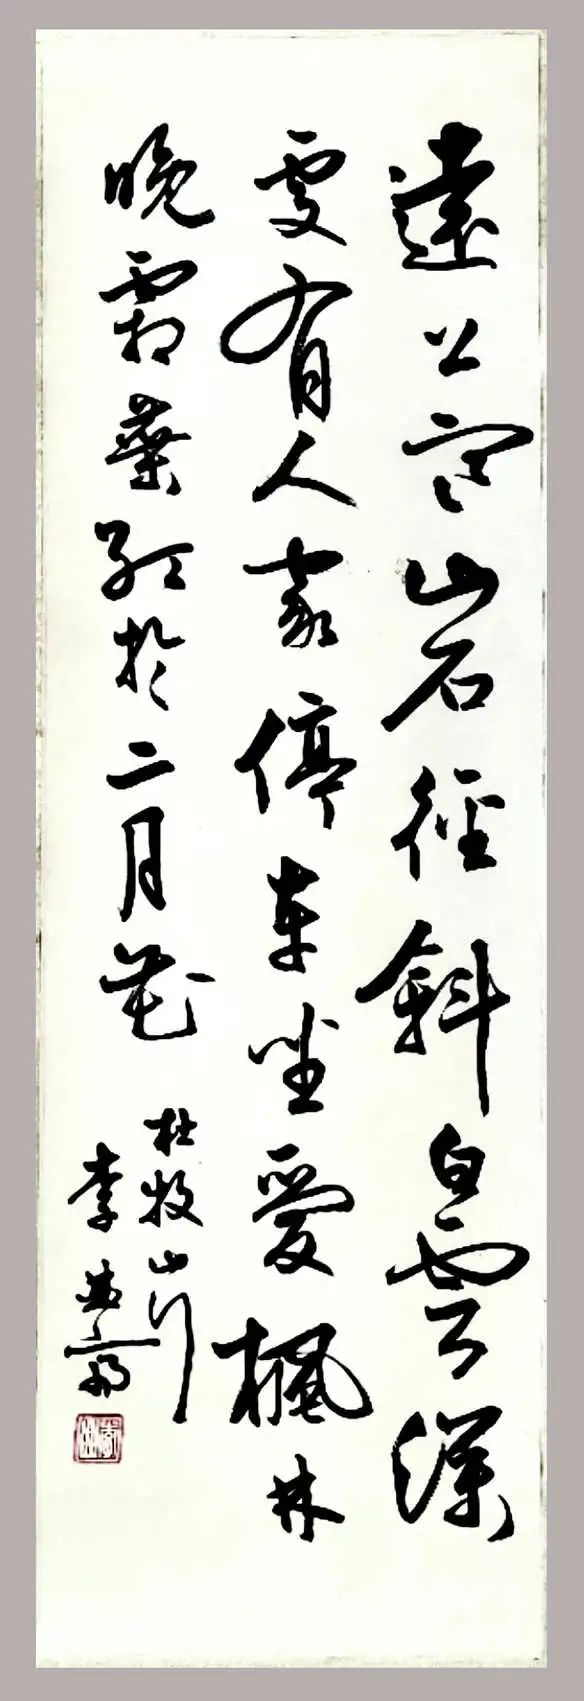 遠上寒山石徑斜白雲深
處有人家停車坐愛楓林
晚霜葉紅於二月花
杜牧山行
李